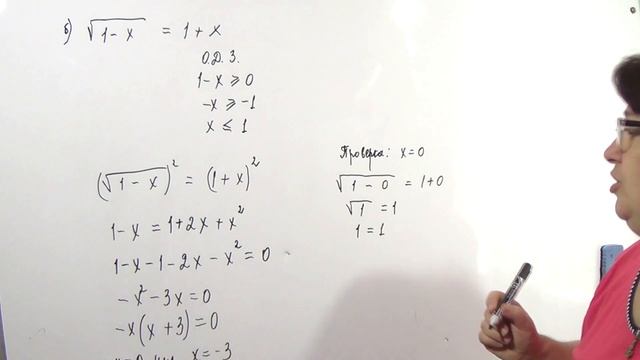 б) √(1-x) = 1+x
О.Д.З.
1-x ⩾ 0
-x ⩾ -1
x ⩽ 1
(√(1-x))² = (1+x)²
1-x = 1+2x+x²
1-x-1-2x-x² = 0
-x²-3x = 0
-x(x+3) = 0
x=-3
Проверка: x=0
√(1-0) = 1+0
√1 = 1
1=1